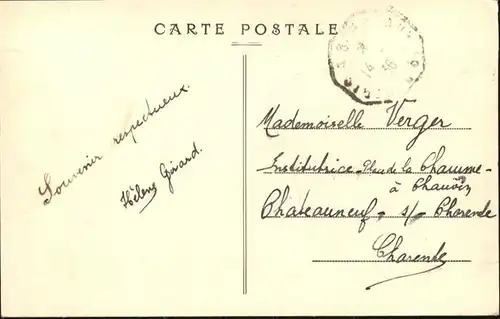 CARTE POSTALE
Souvenir respectueux.
Hélène Girard.
Mademoiselle Verger
Institutrice - Place de la Chaume -
à Chauvin
Chateauneuf - s/- Charente
Charente